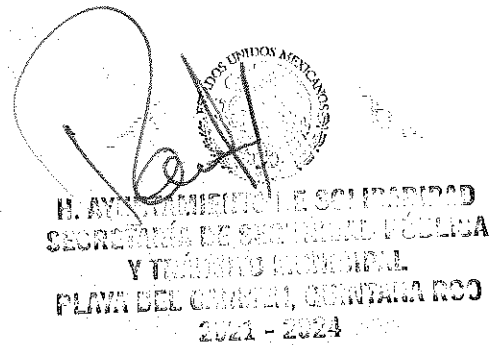 ESTADOS UNIDOS MEXICANOS
H. AYUNTAMIENTO DE SOLIDARIDAD
SECRETARÍA DE SEGURIDAD PÚBLICA
Y TRÁNSITO MUNICIPAL
PLAYA DEL CARMEN, QUINTANA ROO
2021 - 2024